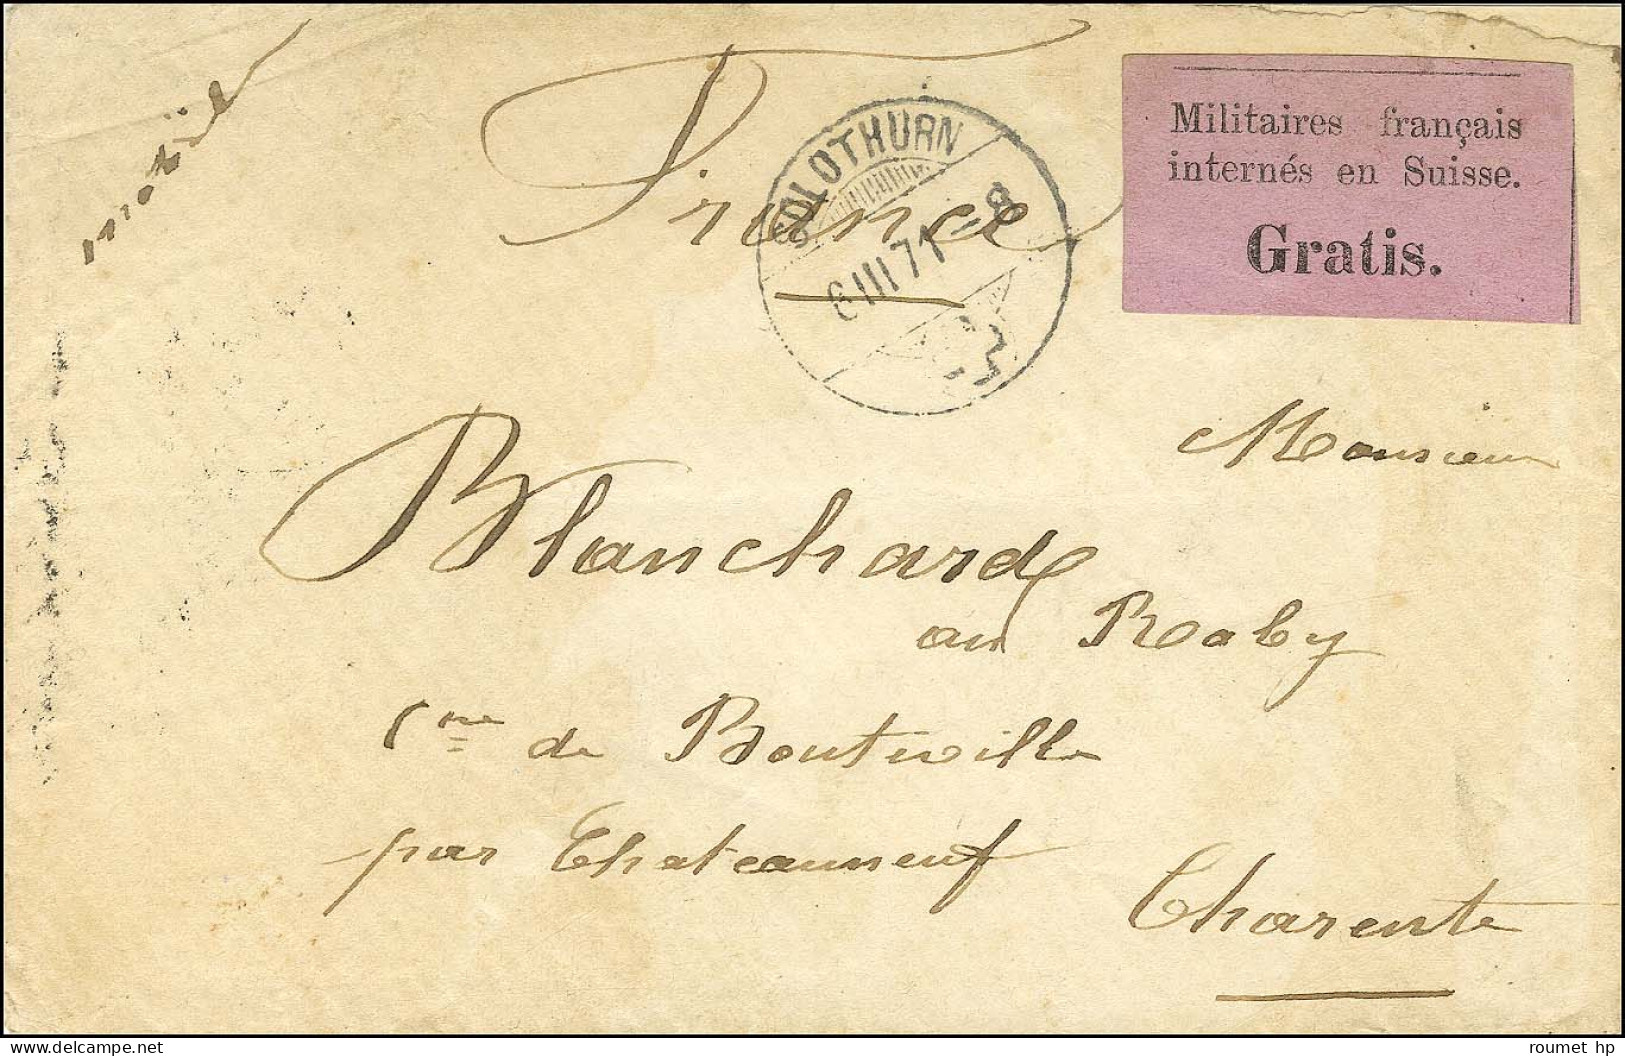 France
SOLOTHURN
6 III 71 - 8
Militaires français
internés en Suisse.
Gratis.
Monsieur
Blanchard
au Raby
Cne de Bouteville
par Chateauneuf
Charente
roumet hp